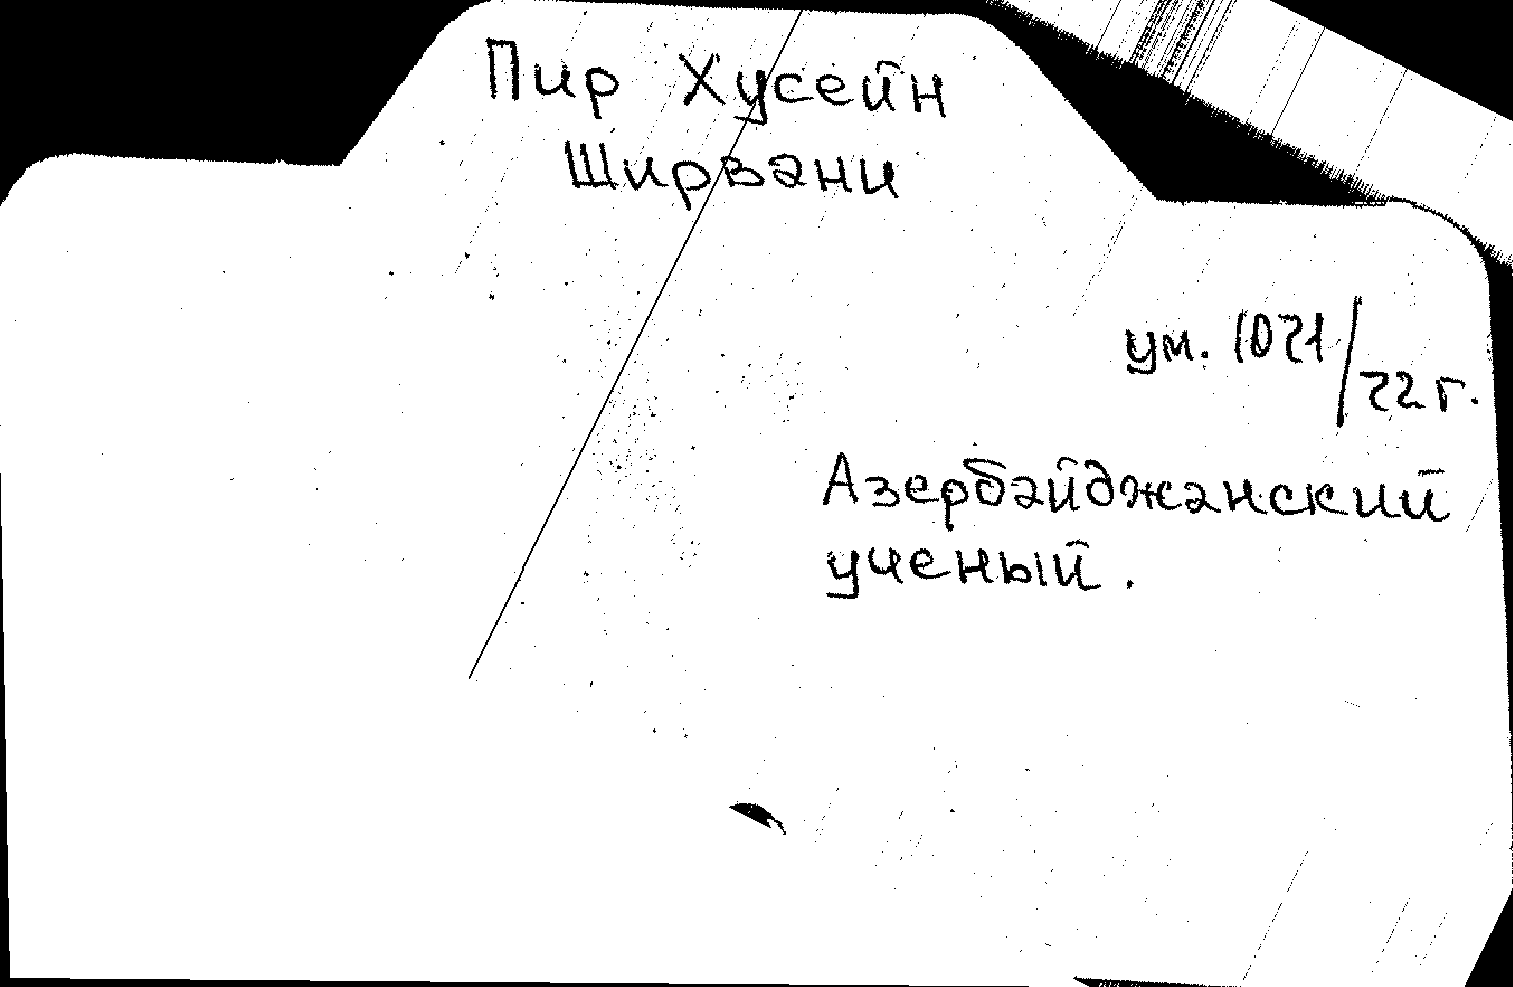 Пир Хусейн
Ширвани
ум. 1021/22 г.
Азербайджанский
ученый.